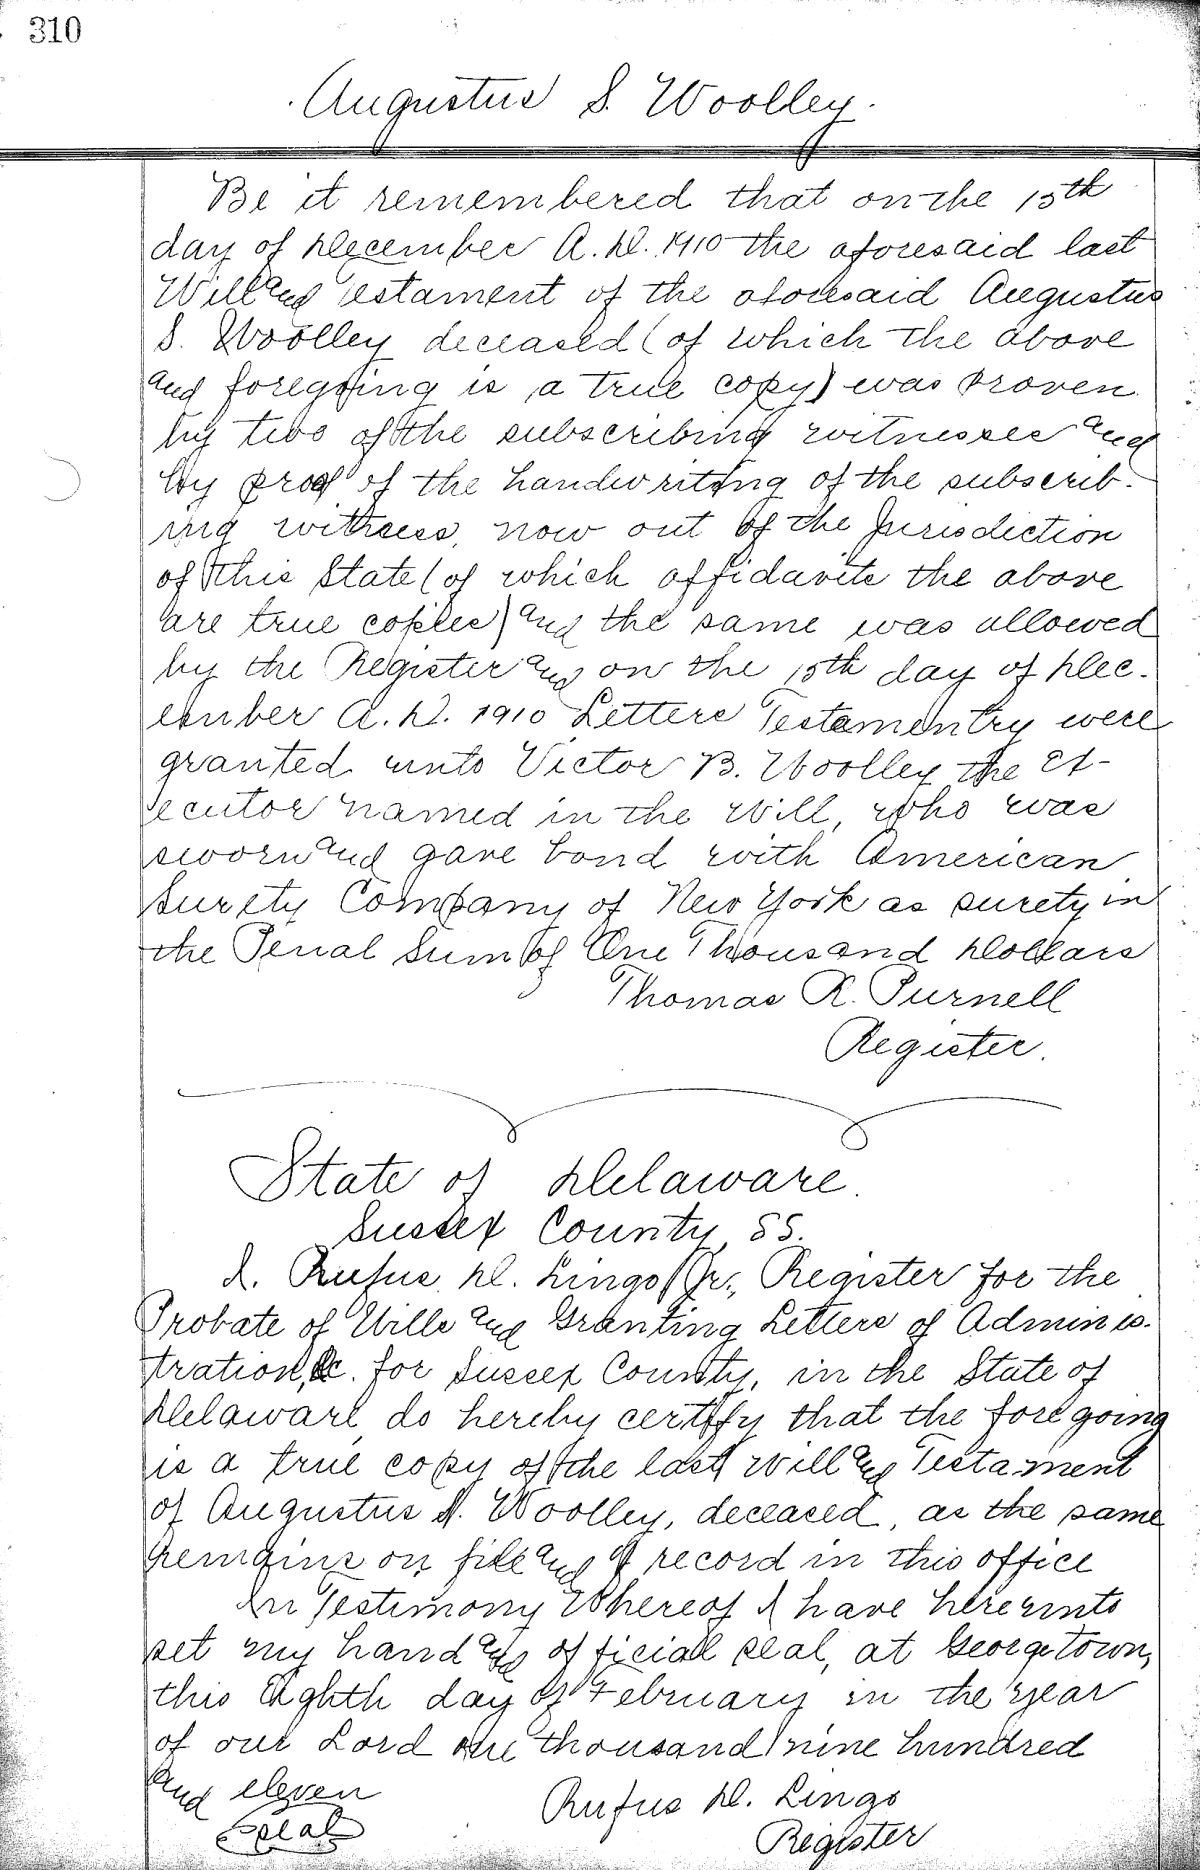 310
Augustus S. Woolley.
Be it remembered that on the 15th
day of December A.D. 1910 the aforesaid last
Will and Testament of the aforesaid Augustus
S. Woolley deceased (of which the above
and foregoing is a true copy) was proven
by two of the subscribing witnesses and
by proof of the handwriting of the subscrib-
ing witness, now out of the Jurisdiction
of this State (of which affidavits the above
are true copies) and the same was allowed
by the Register and on the 15th day of Dec-
ember A.D. 1910 Letters Testamentry were
granted unto Victor B. Woolley the Ex-
ecutor named in the Will, who was
sworn and gave bond with American
Surety Company of New York as surety in
the Penal Sum of One Thousand Dollars
Thomas R. Purnell
Register.
State of Delaware.
Sussex County, SS.
I. Rufus D. Lingo Jr., Register for the
Probate of Wills and Granting Letters of Adminis-
tration, &c. for Sussex County, in the State of
Delaware, do hereby certify that the foregoing
is a true copy of the last Will and Testament
of Augustus S. Woolley, deceased, as the same
remains on file and of record in this office
In Testimony Whereof I have hereunto
set my hand and official seal, at Georgetown,
this Eighth day of February in the year
of our Lord one thousand nine hundred
and eleven
Rufus D. Lingo
Seal
Register